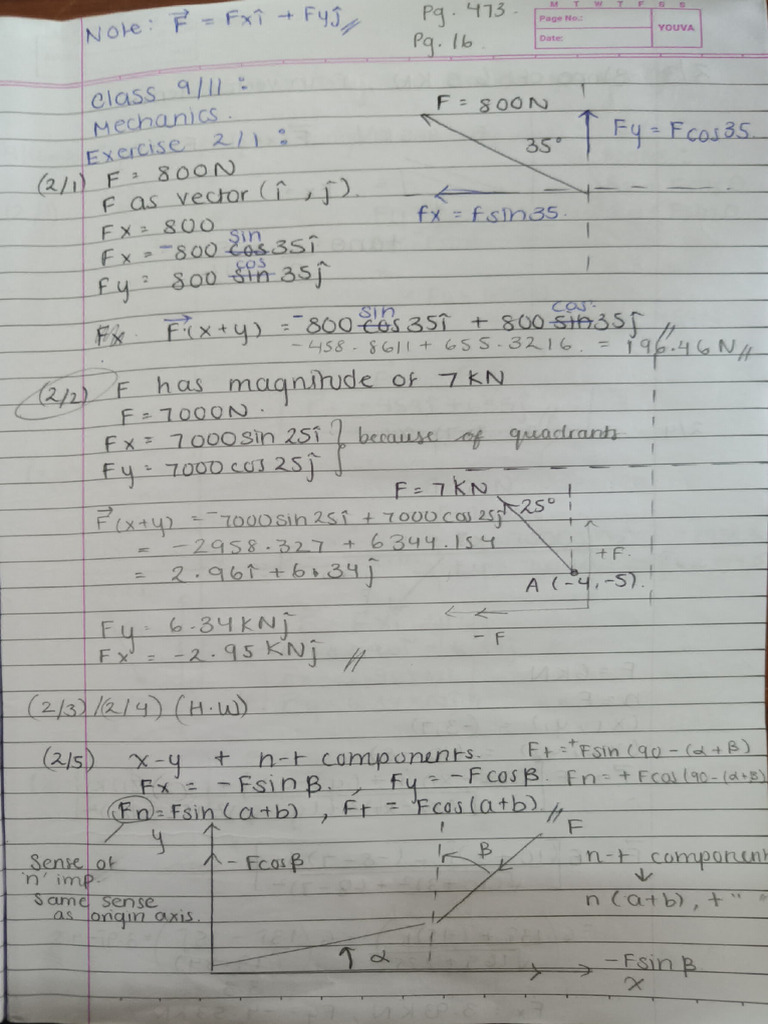 Note: F = Fxî + Fyĵ //
Pg. 473.
Pg. 16
M T W T F S S
Page No.:
Date:
YOUVA
class 9/11 :
Mechanics.
Exercise 2/1 :
F = 800N
35°
Fy = Fcos35
fx = fsin35.
(2/1) F = 800N
F as vector (î , ĵ).
Fx = 800
Fx = -800 cos sin 35î
Fy = 800 sin cos 35ĵ
Fx F(x+y) = -800 cos sin 35î + 800 sin cos 35ĵ //
-458.8611 + 655.3216 = 196.46N //
(2/2) F has magnitude of 7 KN
F = 7000N.
Fx = 7000 sin 25î } because of quadrants
Fy = 7000 cos 25ĵ
F = 7 KN
25°
F(x+y) = -7000sin25î + 7000cos25ĵ
= -2958.327 + 6344.154
= 2.96î + 6.34ĵ
+F.
A (-4,-5).
- F
Fy = 6.34KNĵ
Fx = -2.95 KNĵ //
(2/3) /(2/4) (H.W)
(2/5) x-y + n-t components. Ft = +Fsin(90-(α+β)
Fx = -Fsinβ. , Fy = -Fcosβ. Fn = +Fcos(90-(α+β)
Fn = Fsin(a+b) , Ft = Fcos(a+b) //
y
Sense of
'n' imp.
Same sense
as origin axis.
-Fcosβ
β
F
n-t component
n(a+b), t " "
α
-Fsinβ
x